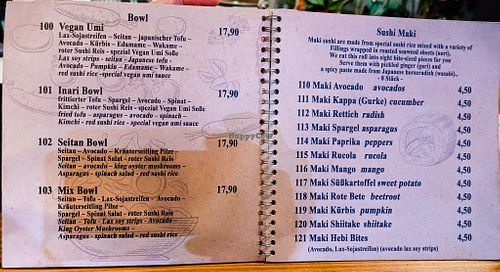 Bowl
100 Vegan Umi 17,90
Lax-Sojastreifen - Seitan - Japanischer Tofu -
Avocado - Kürbis - Edamame - Wakame -
roter Sushi Reis - spezial vegan Umi Soße
Lax soy strips - seitan - Japanese tofu -
avocado - Pumpkin - Edamame - Wakame -
red sushi rice - special vegan umi sauce
101 Inari Bowl 17,90
frittierter Tofu - Spargel - Avocado - Spinat -
Kimchi - roter Sushi Reis - spezial vegan Umi Soße
fried tofu - asparagus - avocado - spinach -
Kimchi - red sushi rice - special vegan umi sauce
102 Seitan Bowl 17,90
Seitan - Avocado - Kräuterseitling Pilze -
Spargel - Spinat Salat - roter Sushi Reis
Seitan - avocado - king oyster mushrooms -
Asparagus - spinach salad - red sushi rice
103 Mix Bowl 17,90
Seitan - Tofu - Lax-Sojastreifen - Avocado -
Kräuterseitling Pilze -
Spargel - Spinat Salat - roter Sushi Reis
Seitan - Tofu - Lax soy strips - Avocado -
King Oyster Mushrooms -
Asparagus - spinach salad - red sushi rice
HappyCow
Sushi Maki
Maki sushi are made from special sushi rice mixed with a variety of
Fillings wrapped in roasted seaweed sheets (nori).
We cut this roll into eight bite-sized pieces for you
Serve them with pickled ginger (gari) and
a spicy paste made from Japanese horseradish (wasabi).
- 8 Stück -
110 Maki Avocado avocados 4,50
111 Maki Kappa (Gurke) cucumber 4,50
112 Maki Rettich radish 4,50
113 Maki Spargel asparagus 4,50
114 Maki Paprika peppers 4,50
115 Maki Rucola rucola 4,50
116 Maki Mango mango 4,50
117 Maki Süßkartoffel sweet potato 4,50
118 Maki Rote Bete beetroot 4,50
119 Maki Kürbis pumpkin 4,50
120 Maki Shiitake shiitake 4,50
121 Maki Hebi Bites 4,50
(Avocado, Lax-Sojastreifen) (avocado lax soy strips)